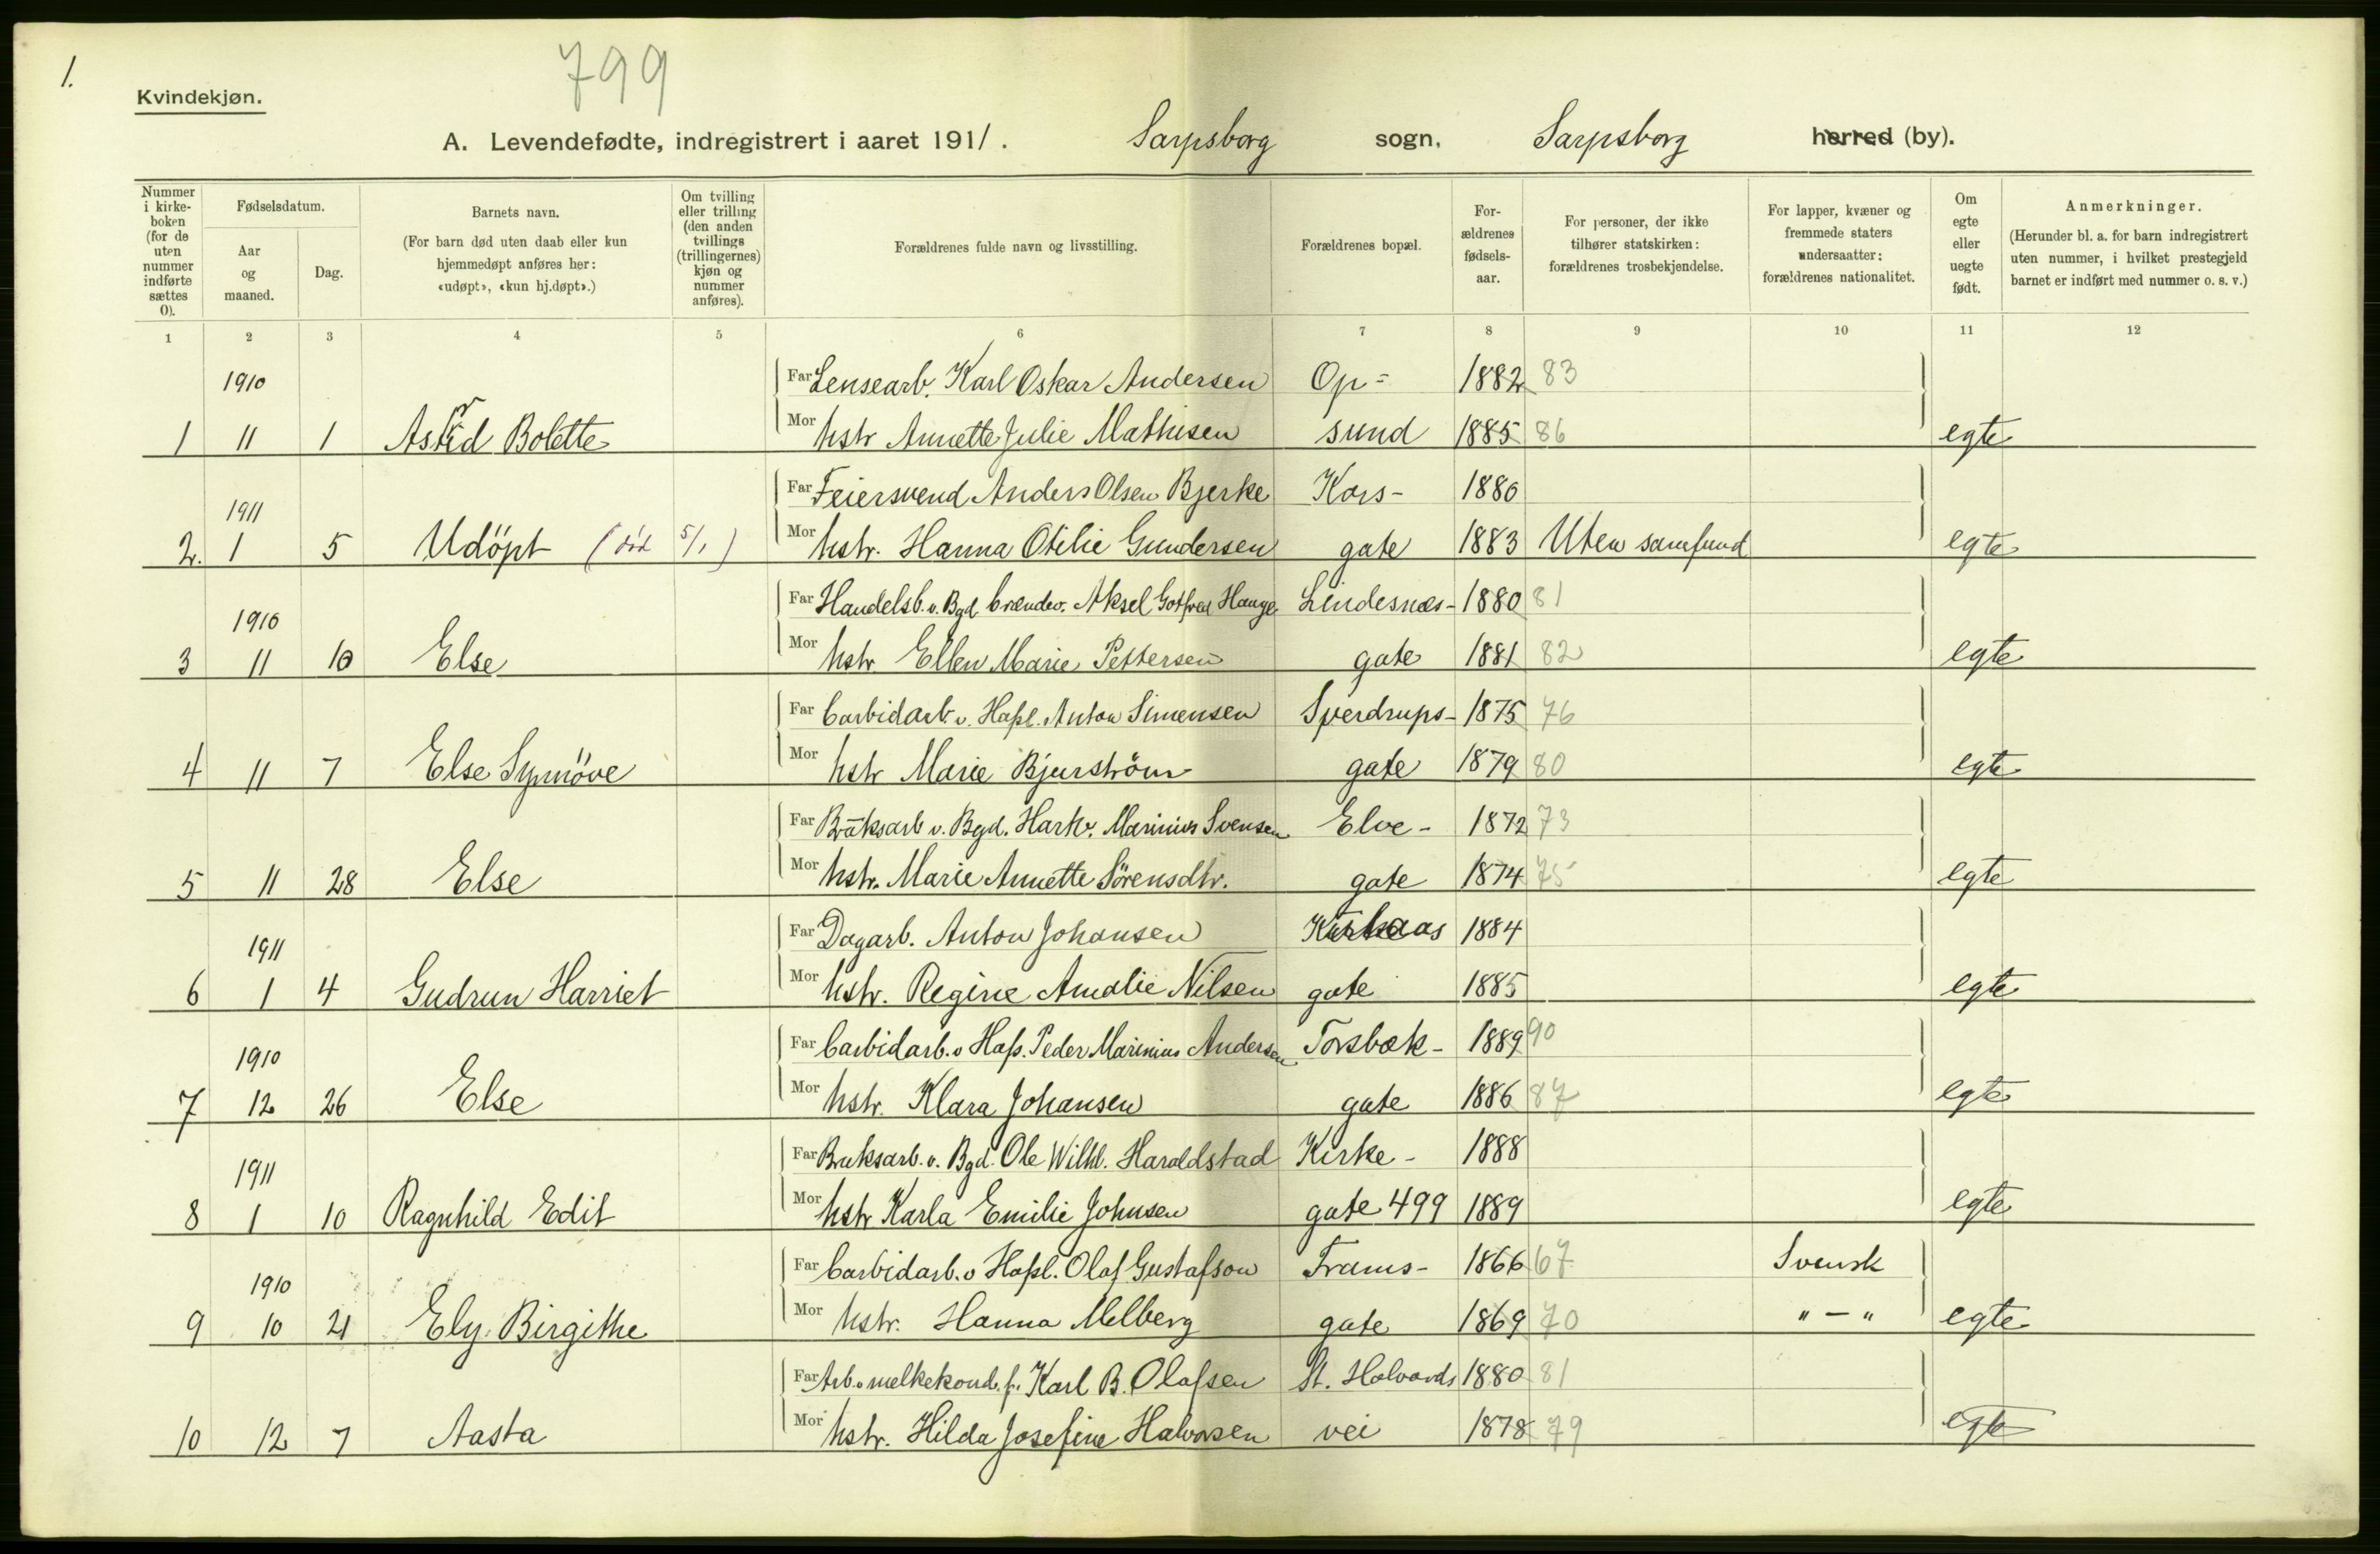 1.
799
Kvindekjøn.
A. Levendefødte, indregistrert i aaret 1911. Sarpsborg sogn, Sarpsborg herred (by).
Nummer i kirke-boken (for de uten nummer indførte sættes 0).
Fødselsdatum.
Aar og maaned.
Dag.
Barnets navn.
(For barn død uten daab eller kun hjemmedøpt anføres her: «udøpt», «kun hj.døpt».)
Om tvilling eller trilling (den anden tvillings (trillingernes) kjøn og nummer anføres).
Forældrenes fulde navn og livsstilling.
Forældrenes bopæl.
For-ældrenes fødsels-aar.
For personer, der ikke tilhører statskirken: forældrenes trosbekjendelse.
For lapper, kvæner og fremmede staters undersaatter: forældrenes nationalitet.
Om egte eller uegte født.
Anmerkninger.
(Herunder bl. a. for barn indregistrert uten nummer, i hvilket prestegjeld barnet er indført med nummer o. s. v.)
1 2 3 4 5 6 7 8 9 10 11 12
1910 Far Lensearb. Karl Oskar Andersen Op= 1882 83
1 11 1 Astrid Bolette Mor hstr Annette Julie Mathisen sund 1885 86 egte
1911 Far Feiersvend Anders Olsen Bjerke Kors- 1880
2. 1 5 Udöpt (död 5/1) Mor hstr. Hanna Otilie Gundersen gate 1883 Uten samfund egte
1910 Far Handelsb. v. Bgd. brendev. Aksel Gotfred Hauge Lindesnæs- 1880 81
3 11 10 Else Mor hstr. Ellen Marie Pettersen gate 1881 82 egte
Far Carbidarb. v. Hafsl. Anton Simensen Sverdrups- 1875 76
4 11 7 Else Synnöve Mor hstr Marie Bjurström gate 1879 80 egte
Far Bruksarb v. Bgd. Hartv. Marinius Svensen Elve- 1872 73
5 11 28 Else Mor hstr. Marie Annette Sörensdtr. gate 1874 75 egte
1911 Far Dagarb. Anton Johansen 1884
6 1 4 Gudrun Harriet Mor hstr. Regine Amalie Nilsen gate 1885 egte
1910 Far Carbidarb. v Hafs. Peder Marinius Andersen Torsbæk- 1889 90
7 12 26 Else Mor hstr. Klara Johansen gate 1886 87 egte
1911 Far Bruksarb. v. Bgd. Ole Wilhl. Haraldstad Kirke- 1888
8 1 10 Ragnhild Edit Mor hstr Karla Emilie Johnsen gate 499 1889 egte
1910 Far Carbidarb. v Hafsl. Olaf Gustafson Frams- 1866 67 Svensk
9 10 21 Ely Birgithe Mor hstr. Hanna Melberg gate 1869 70 "-" egte
Far Arb. v melkekond. f. Karl B. Olafsen St. Halvards 1880 81
10 12 7 Aasta Mor hstr. Hilda Josefine Halvorsen vei 1878 79 egte